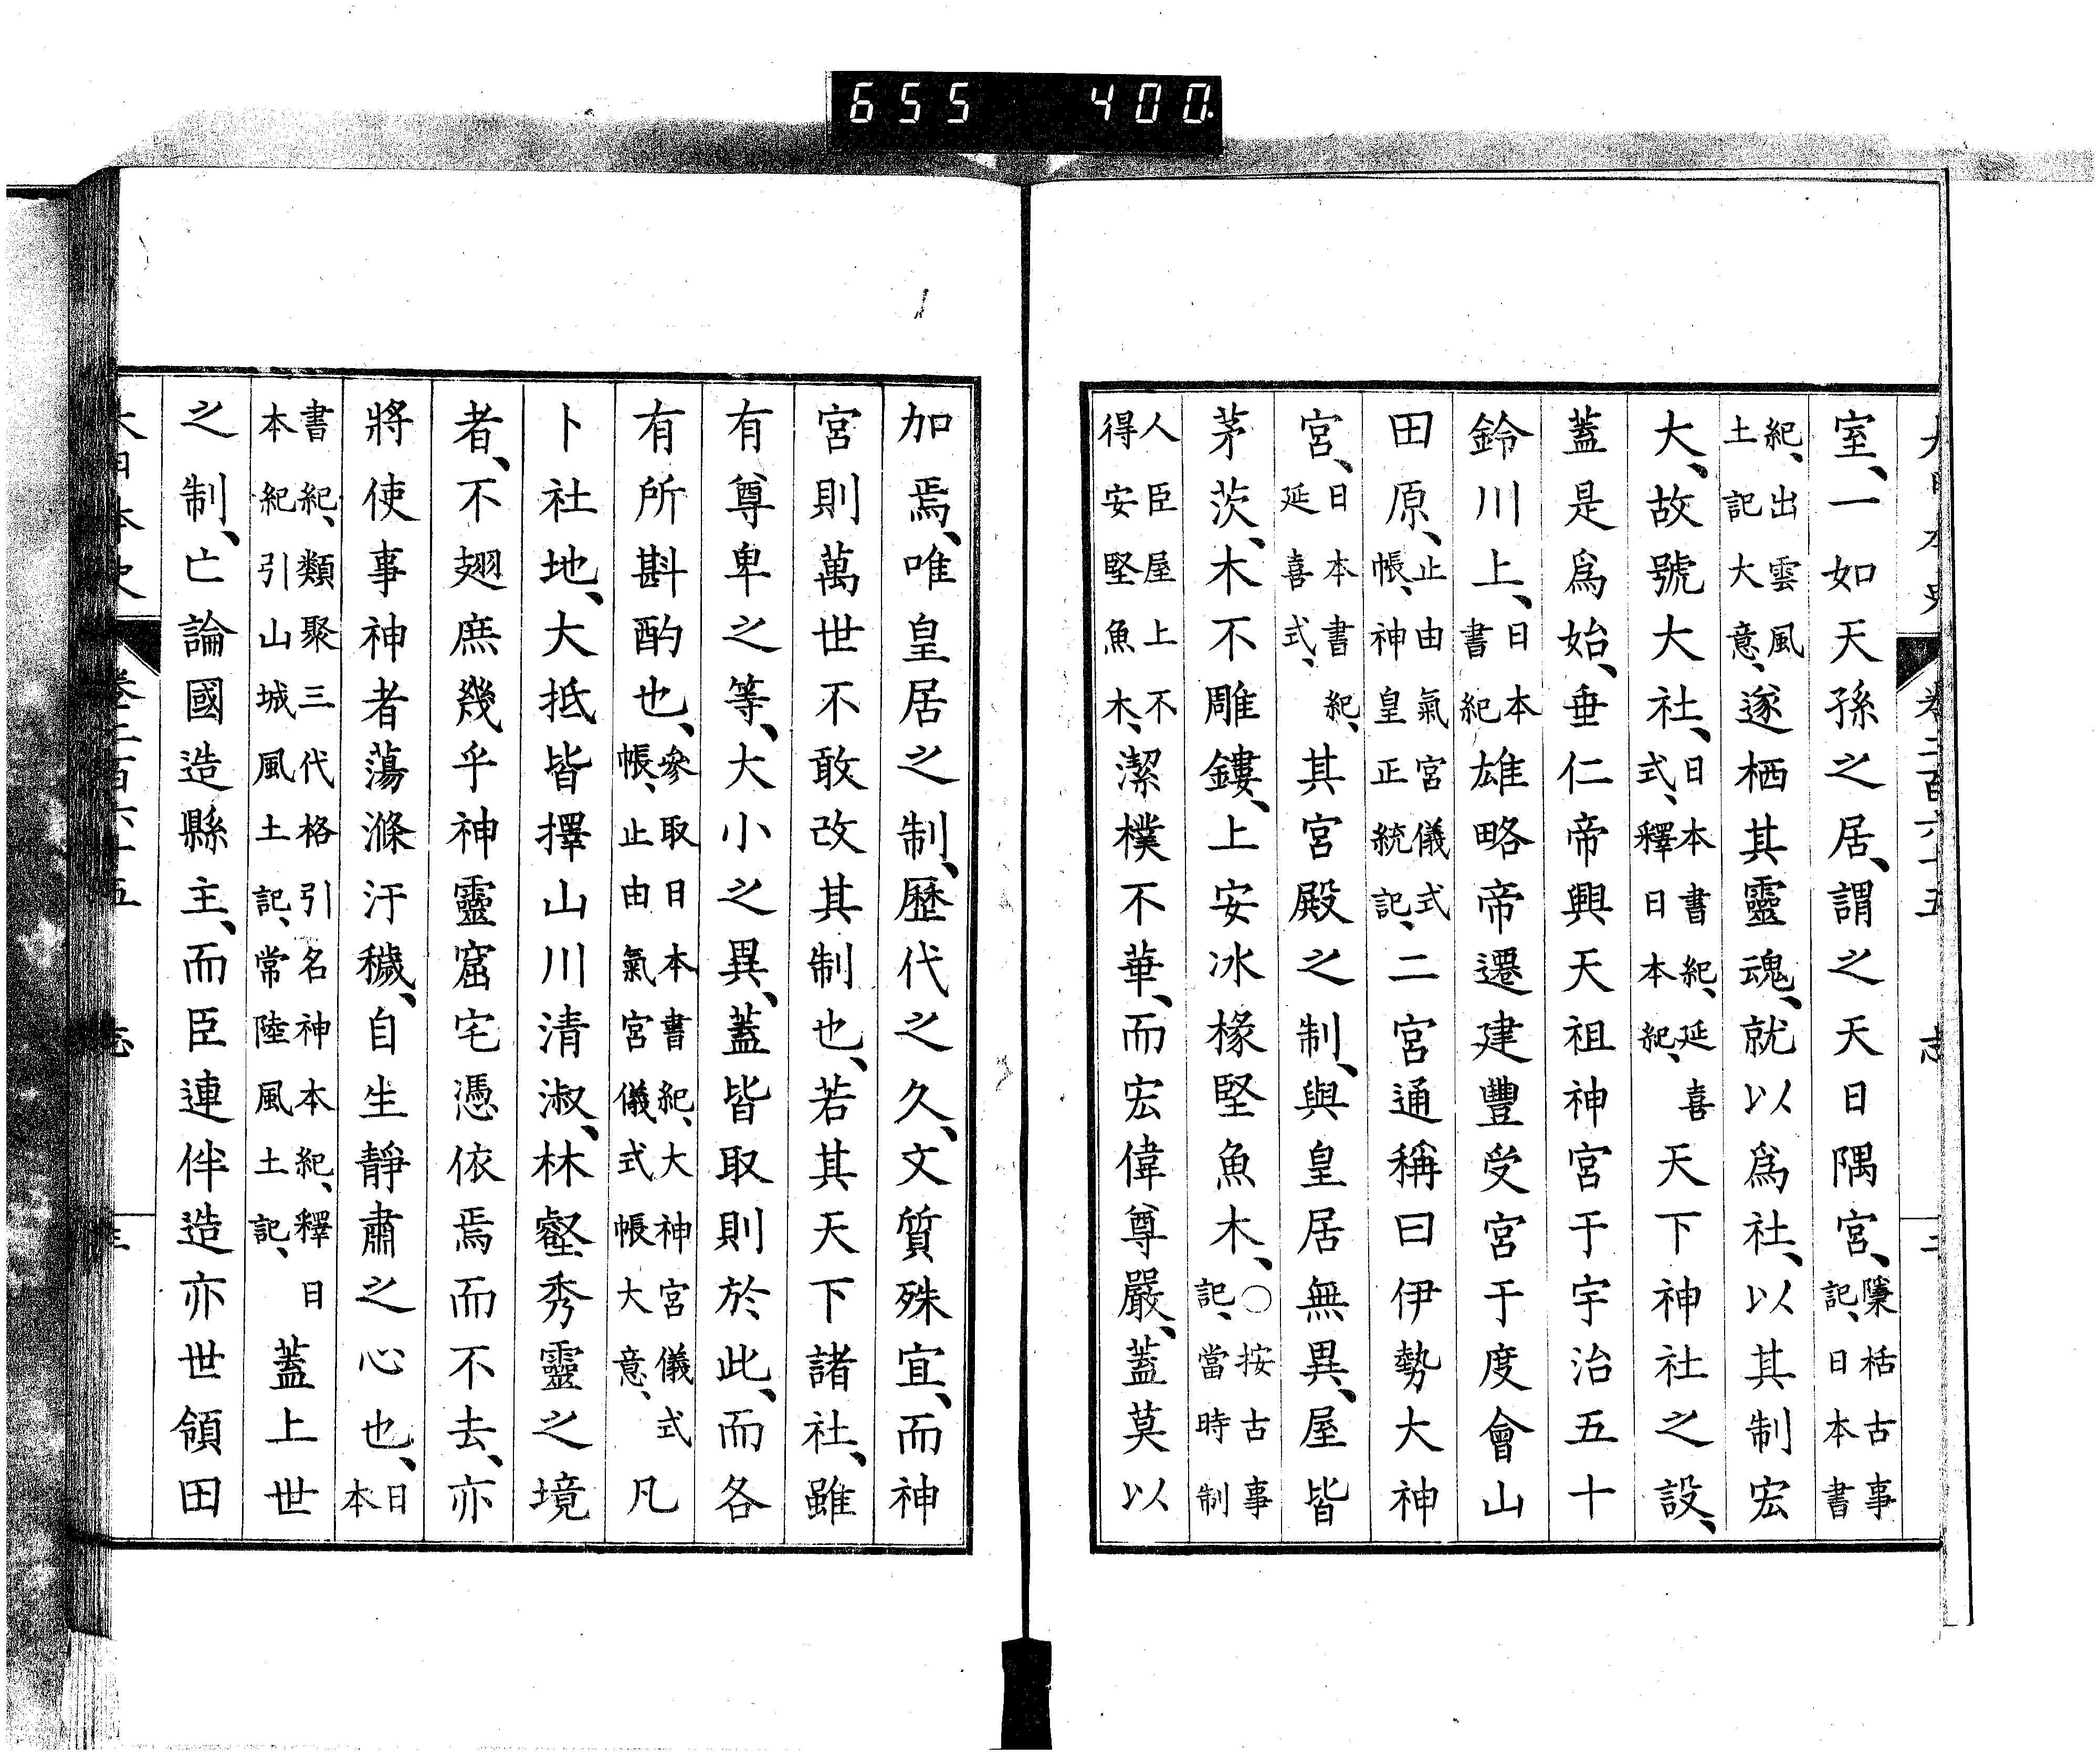 655 400.
室、一如天孫之居、謂之天日隅宮、隱栝古事記、日本書
紀、出雲風土記大意、遂栖其靈魂、就以爲社、以其制宏
大、故號大社、日本書紀、延喜式、釋日本紀、天下神社之設、
蓋是爲始、垂仁帝興天祖神宮于宇治五十
鈴川上、日本書紀雄略帝遷建豐受宮于度會山
田原、止由氣宮儀式帳、神皇正統記、二宮通稱曰伊勢大神
宮、日本書紀、延喜式、其宮殿之制、與皇居無異、屋皆
茅茨、木不雕鏤、上安冰椽堅魚木、○按古事記、當時制
人臣屋上不得安堅魚木、潔樸不華、而宏偉尊嚴、蓋莫以
加焉、唯皇居之制、歷代之久、文質殊宜、而神
宮則萬世不敢改其制也、若其天下諸社、雖
有尊卑之等、大小之異、蓋皆取則於此、而各
有所斟酌也、參取日本書紀、大神宮儀式帳、止由氣宮儀式帳大意、凡
卜社地、大抵皆擇山川清淑、林壑秀靈之境
者、不翅庶幾乎神靈窟宅憑依焉而不去、亦
將使事神者蕩滌汙穢、自生靜肅之心也、日本
書紀、類聚三代格引名神本紀、釋日本紀引山城風土記、常陸風土記、蓋上世
之制、亡論國造縣主、而臣連伴造亦世領田